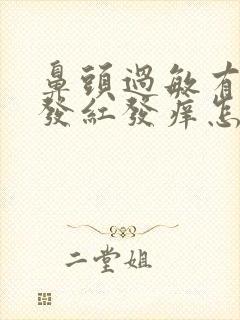 鼻頭過敏有
發紅發癢怎
二堂姐